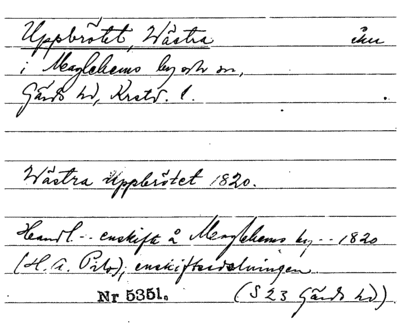 Uppbrötet, Wästra åker
i Maglehems by och sn,
Gärds hd, Krstd. l.
Wästra Uppbrötet 1820.
Handl. - enskifte å Maglehems by - 1820
(H. A. ), enskiftesdelningen
Nr 5351. (S 23 Gärds hd)